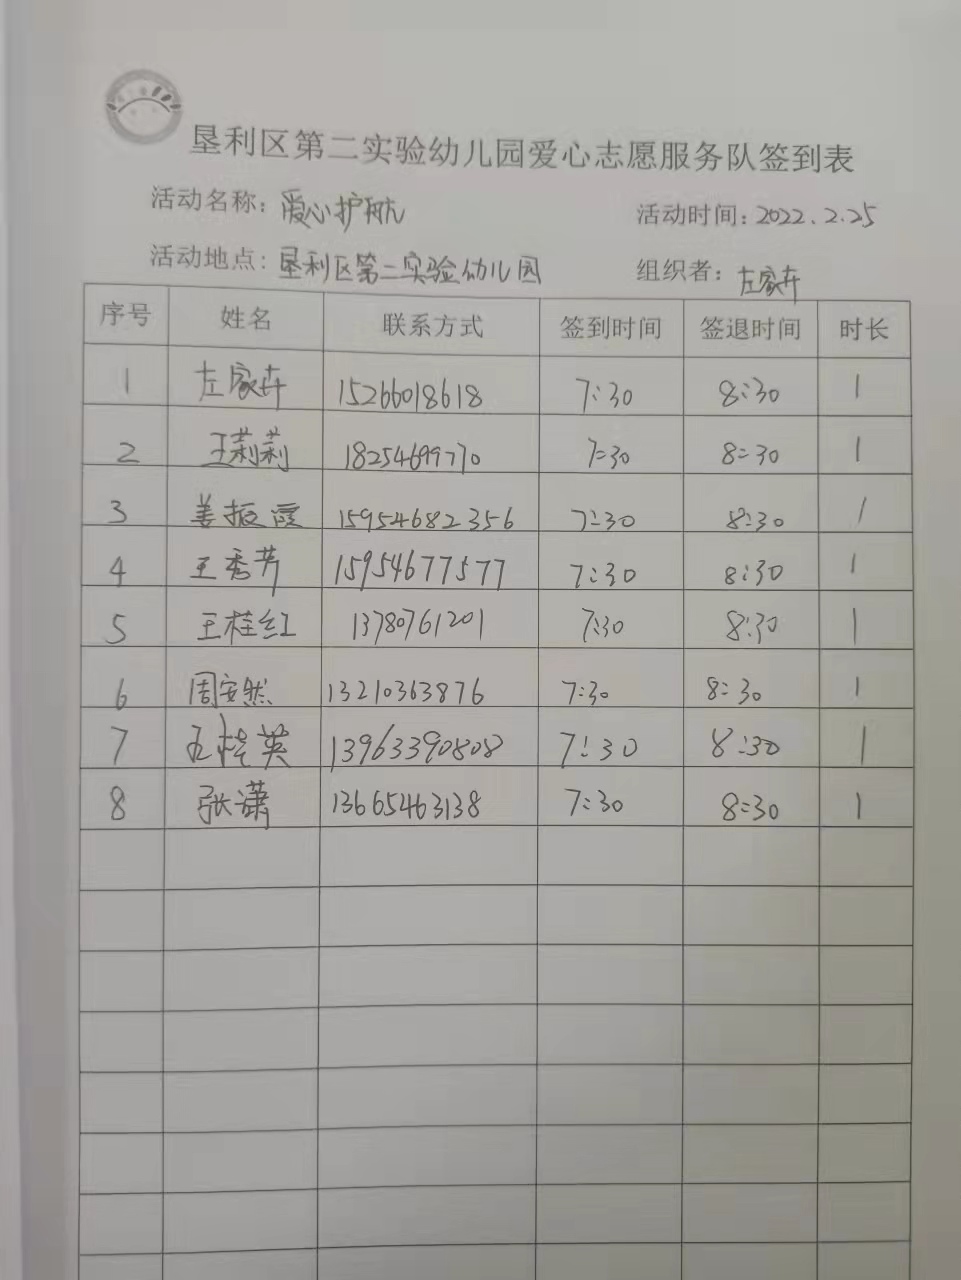 垦利区第二实验幼儿园爱心志愿服务队签到表
活动名称：爱心护航 活动时间：2022.2.25
活动地点：垦利区第二实验幼儿园 组织者：左家卉
序号 姓名 联系方式 签到时间 签退时间 时长
1 左家卉 15266018618 7:30 8:30 1
2 王莉莉 18254699770 7:30 8:30 1
3 姜振霞 15954682356 7:30 8:30 1
4 王秀芳 15954677577 7:30 8:30 1
5 王桂红 13780761201 7:30 8:30 1
6 周安然 13210363876 7:30 8:30 1
7 桂英 13963390808 7:30 8:30 1
8 张潇 13665463138 7:30 8:30 1